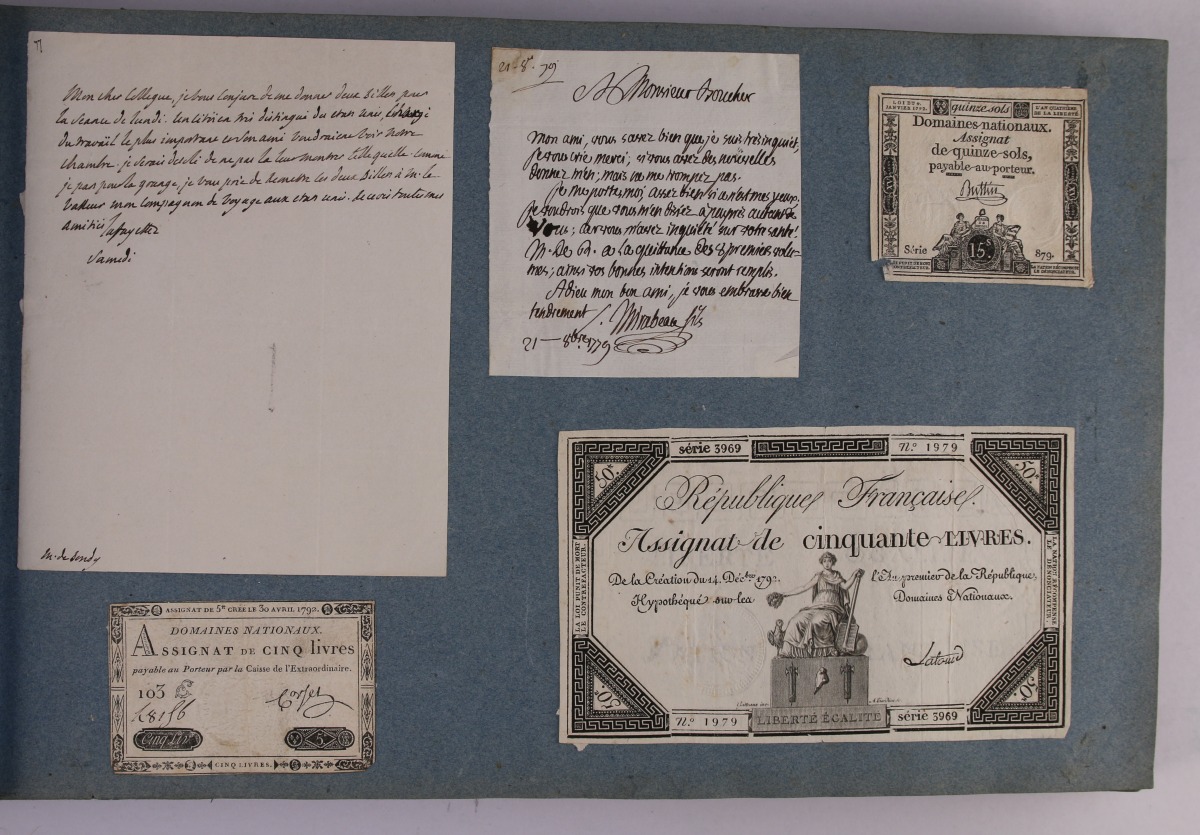 Mon cher Collegue, je vous conjure de me donner deux billes pour
la seance de lundi. un citoien tres distingué des etats unis, chargé
du travail le plus important et son ami voudroient voir notre
chambre. je serais desolé de ne pas la leur montrer telle quelle comme
je pas pour la je vous prie de remettre les deux billes à m. le
Vasseur mon compagnon de voyage aux etats unis. recevez toutes mes
amitiés
Lafayette
Samedi
m. de
21 - 8re 79
A Monsieur Boucher
Mon ami, vous savez bien que je suis très inquiet,
je vous crie merci; si vous avez des nouvelles
donnez m'en; mais ne me trompez pas.
je me porte, moi, assez bien si ce n'est mes yeux.
je voudrois que vous m'en disiez à peu près autant de
vous; car vous m'avez inquiété sur votre santé
M. De R. a la quittance des 3 premiers volu-
mes; ainsi vos bonnes intentions seront remplis.
Adieu mon bon ami, je vous embrasse bien
tendrement
Mirabeau fils
21 — 8bre 1779
LOI DU 4 JANVIER 1792.
quinze sols
L'AN QUATRIÈME DE LA LIBERTÉ
Domaines nationaux.
Assignat
de quinze-sols,
payable-au-porteur.
Buttin
15.s
Série 879e
LA LOI PUNIT DE MORT LE CONTREFACTEUR
LA NATION RÉCOMPENSE LE DÉNONCIATEUR
série 3969
N.º 1979
50.tt
50.tt
République Française.
Assignat de cinquante LIVRES.
De la Création du 14. Déc.bre 1792. l'An premier de la République,
Hypothéqué sur les Domaines Nationaux.
LA LOI PUNIT DE MORT LE CONTREFACTEUR.
LA NATION RÉCOMPENSE LE DÉNONCIATEUR.
Latoud
50.tt
50.tt
N.º 1979
LIBERTÉ EGALITE
série 3969
ASSIGNAT DE 5tt CRÉÉ LE 30 AVRIL 1792.
DOMAINES NATIONAUX.
ASSIGNAT DE CINQ livres
payable au Porteur par la Caisse de l'Extraordinaire.
103 C
Corset
Cinq Liv.
5
CINQ LIVRES.